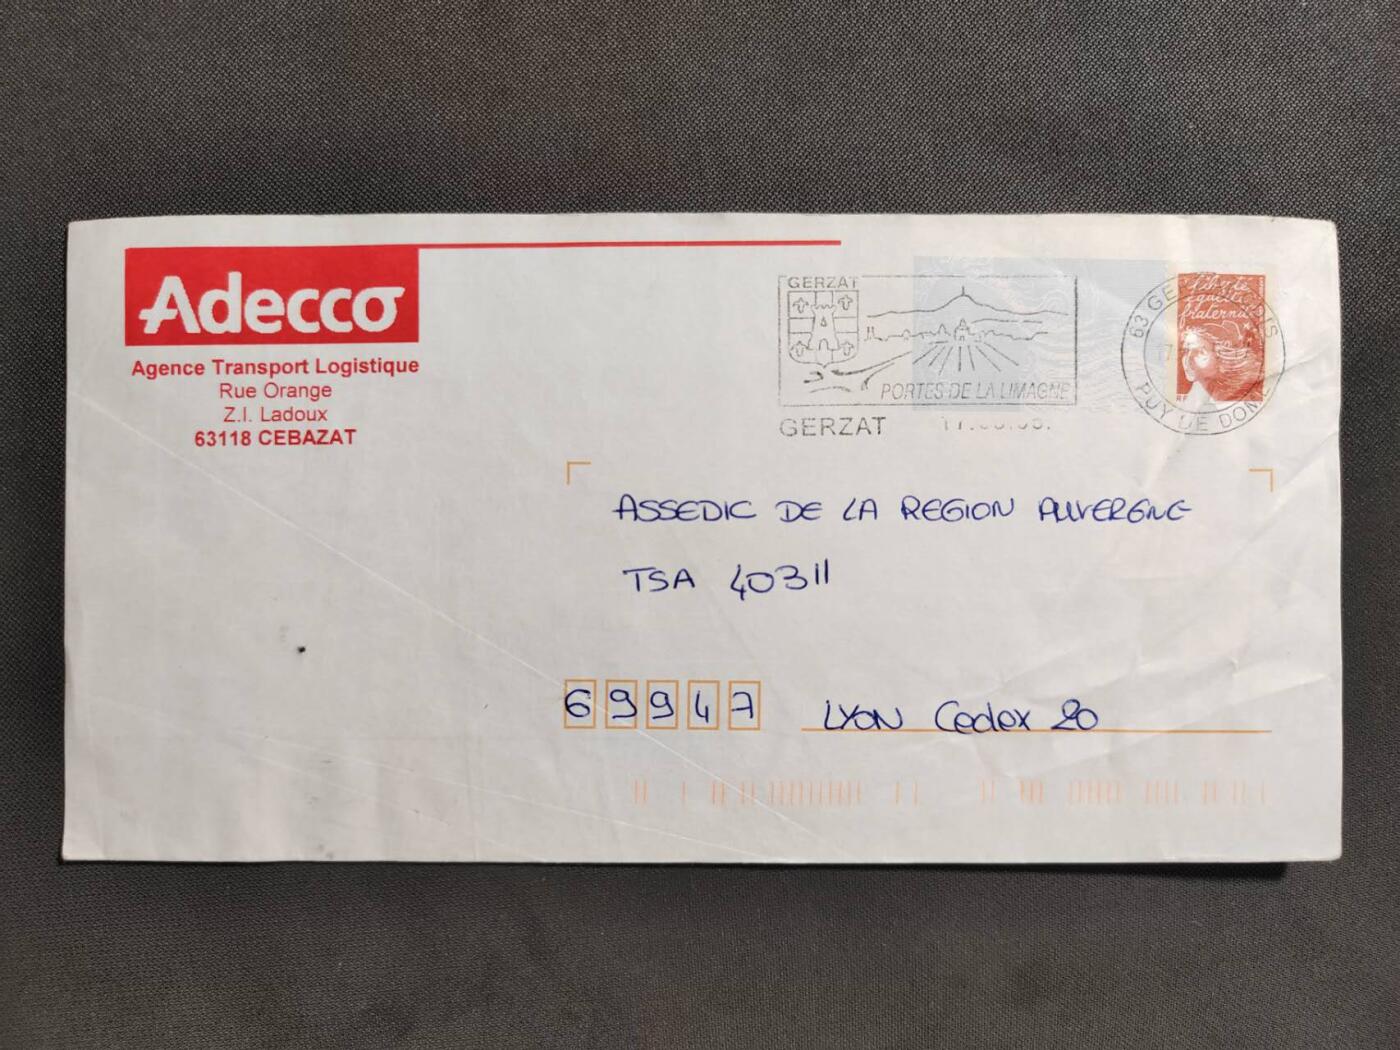 Adecco
Agence Transport Logistique
Rue Orange
Z.I. Ladoux
63118 CEBAZAT
GERZAT
PORTES DE LA LIMAGNE
GERZAT
Liberté
égalité
fraternité
RF
63
PUY DE DOME
ASSEDIC DE LA REGION AUVERGNE
TSA 40311
69947 LYON Cedex 20